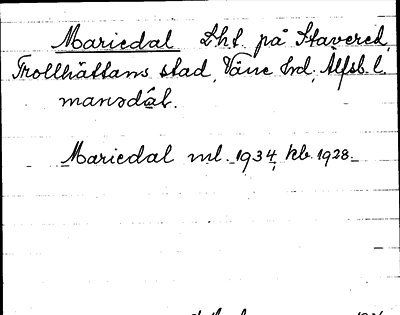 Mariedal Lht. på Stavered,
Trollhättans stad, Väne hd, Älfsb. l.
marədál.
Mariedal ml. 1934, kb. 1928.